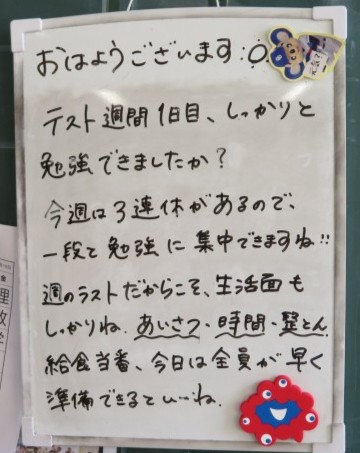 おはようございます
テスト週間1日目、しっかりと
勉強できましたか?
今週は3連休があるので、
一段と勉強に集中できますね!!
週のラストだからこそ、生活面も
しっかりね。あいさつ・時間・整とん。
給食当番、今日は全員が早く
準備できるといいね。
理